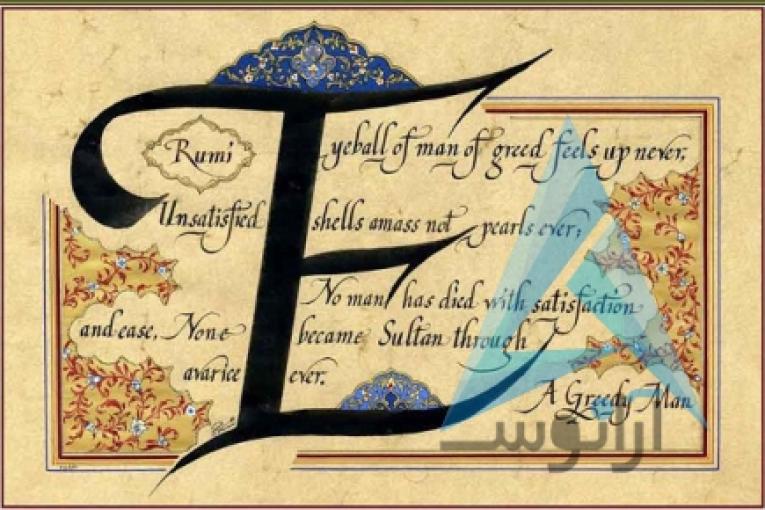 Rumi
Eyeball of man of greed feels up never,
Unsatisfied shells amass not pearls ever;
No man has died with satisfaction
and ease, None became Sultan through
avarice ever.
A Greedy Man
آرانوس